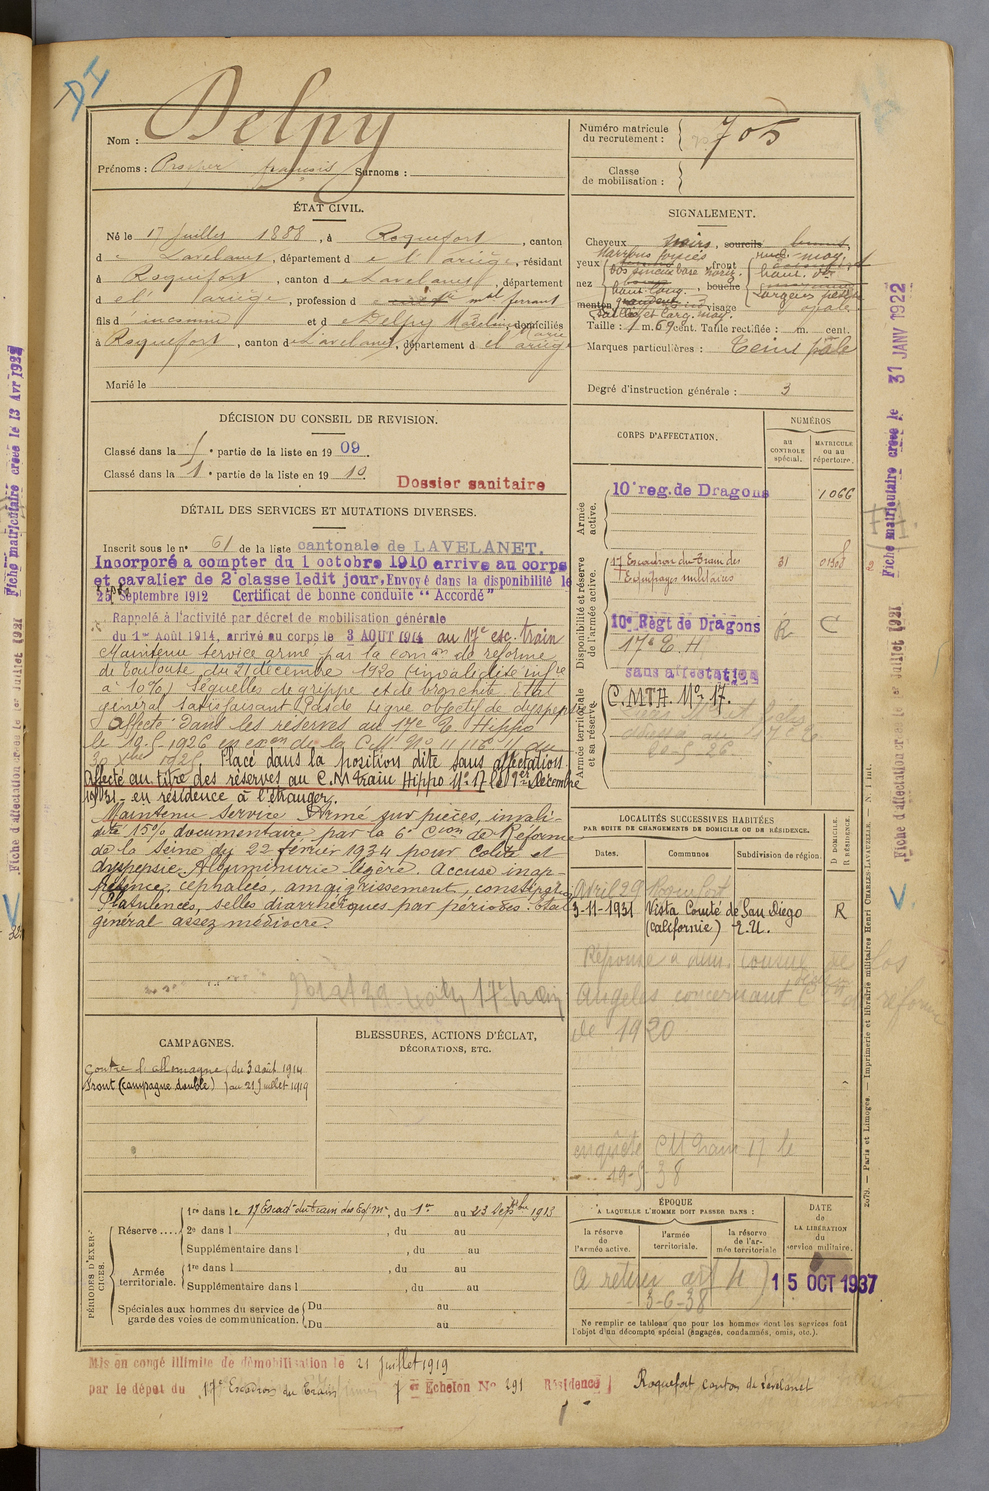 DI
Nom : Delpy
Prénoms : Prosper françois Surnoms :
Numéro matricule du recrutement : 705
Classe de mobilisation :
ÉTAT CIVIL.
Né le 17 juillet 1888, à Roquefort, canton
d e Lavelanet, département d e l'ariège, résidant
à Roquefort, canton d e Lavelanet, département
d el' ariège, profession d e mal ferrant
fils d' inconnu et d e Delpy Madeleine Marie domiciliés
à Roquefort, canton d e Lavelanet, département d el ariège
Marié le
SIGNALEMENT.
Cheveux noirs, sourcils bruns,
yeux marrons foncés front
nez dos sinueux base horiz. bouche haut.
menton visage
saillie et larg. moy.
Taille : 1 m. 69 cent. Taille rectifiée : m. cent.
Marques particulières : Teint pâle
Degré d'instruction générale : 3
DÉCISION DU CONSEIL DE REVISION.
Classé dans la partie de la liste en 1909
Classé dans la 1e partie de la liste en 1910
Dossier sanitaire
DÉTAIL DES SERVICES ET MUTATIONS DIVERSES.
Inscrit sous le n° 61 de la liste cantonale de LAVELANET.
Incorporé à compter du 1 octobre 1910 arrivé au corps
et cavalier de 2e classe ledit jour. Envoyé dans la disponibilité le
25 Septembre 1912 Certificat de bonne conduite "Accordé"
Rappelé à l'activité par décret de mobilisation générale
du 1er Août 1914, arrivé au corps le 3 AOUT 1914 au 17e esc. train
Maintenu service armé par la comon de réforme
de Toulouse du 21 décembre 1920 (invalidité infre
à 10%) Séquelles de grippe et de bronchite. Etat
général satisfaisant Pas de signe objectif de dyspepsie
Affecté dans les réserves au 17e E Hippo
le 19-5-1926 en exon de la C.M. N° 11116 du
30 Xbre 1925. Placé dans la position dite sans affectation
Affecté au titre des réserves au C.M train Hippo N° 17 le 1er Décembre
1931 - en résidence à l'étranger.
Maintenu Service Armé sur pièces, invali-
dité 15% documentaire par la 6e Cion de Réforme
de la Seine du 22 février 1934 pour Colite et
dyspepsie. Albuminurie légère. Accuse inap-
pétence, céphalées, amaigrissement, constipation
flatulences, selles diarrhéiques par périodes. Etat
général assez médiocre.
CORPS D'AFFECTATION.
NUMÉROS
au CONTROLE spécial.
MATRICULE ou au répertoire.
Armée active.
10e reg. de Dragons 1066
Disponibilité et réserve de l'armée active.
17 Escadron du train des Equipages militaires 31 01303
10e Régt de Dragons R C
17e E. H
sans affectation
Armée territoriale et sa réserve.
C.MTH. N° 17.
20-5-26
LOCALITÉS SUCCESSIVES HABITÉES
PAR SUITE DE CHANGEMENTS DE DOMICILE OU DE RÉSIDENCE.
Dates. Communes Subdivision de région. D DOMICILE. R RÉSIDENCE.
Avril 29 Roquefort
3-11-1931 Vista Comté de San Diego R
(Californie) E.U.
Réponse à consul de los
Angeles concernant réforme
de 1920
enquête CM train 17 le
19-5 38
CAMPAGNES.
Contre l'allemagne, du 3 août 1914
Front (campagne double) au 21 juillet 1919
BLESSURES, ACTIONS D'ÉCLAT,
DÉCORATIONS, ETC.
PÉRIODES D'EXERCICES.
Réserve....
1re dans le 17 Escadn du train des Eq. Mres, du 1er au 23 Septembre 1913
2e dans l , du au
Supplémentaire dans l , du au
Armée territoriale.
1re dans l , du au
Supplémentaire dans l , du au
Spéciales aux hommes du service de garde des voies de communication.
Du au
Du au
ÉPOQUE
A LAQUELLE L'HOMME DOIT PASSER DANS :
la réserve de l'armée active.
l'armée territoriale.
la réserve de l'armée territoriale
DATE de LA LIBÉRATION du service militaire.
A retirer
3-6-38
15 OCT 1937
Ne remplir ce tableau que pour les hommes dont les services font
l'objet d'un décompte spécial (engagés, condamnés, omis, etc.).
Mis en congé illimité de démobilisation le 21 juillet 1919
par le dépôt du 17e Escadron du Train 7e Echelon N° 291 Résidence Roquefort canton de Lavelanet
Fiche matriculaire créée le 31 JANV 1922
Fiche d'affectation créée le 1er Juillet 1921
Paris et Limoges. — Imprimerie et librairie militaires Henri CHARLES-LAVAUZELLE.
Fiche matriculaire créée le 13 Avr 1922
Fiche d'affectation créée le 1er Juillet 1921